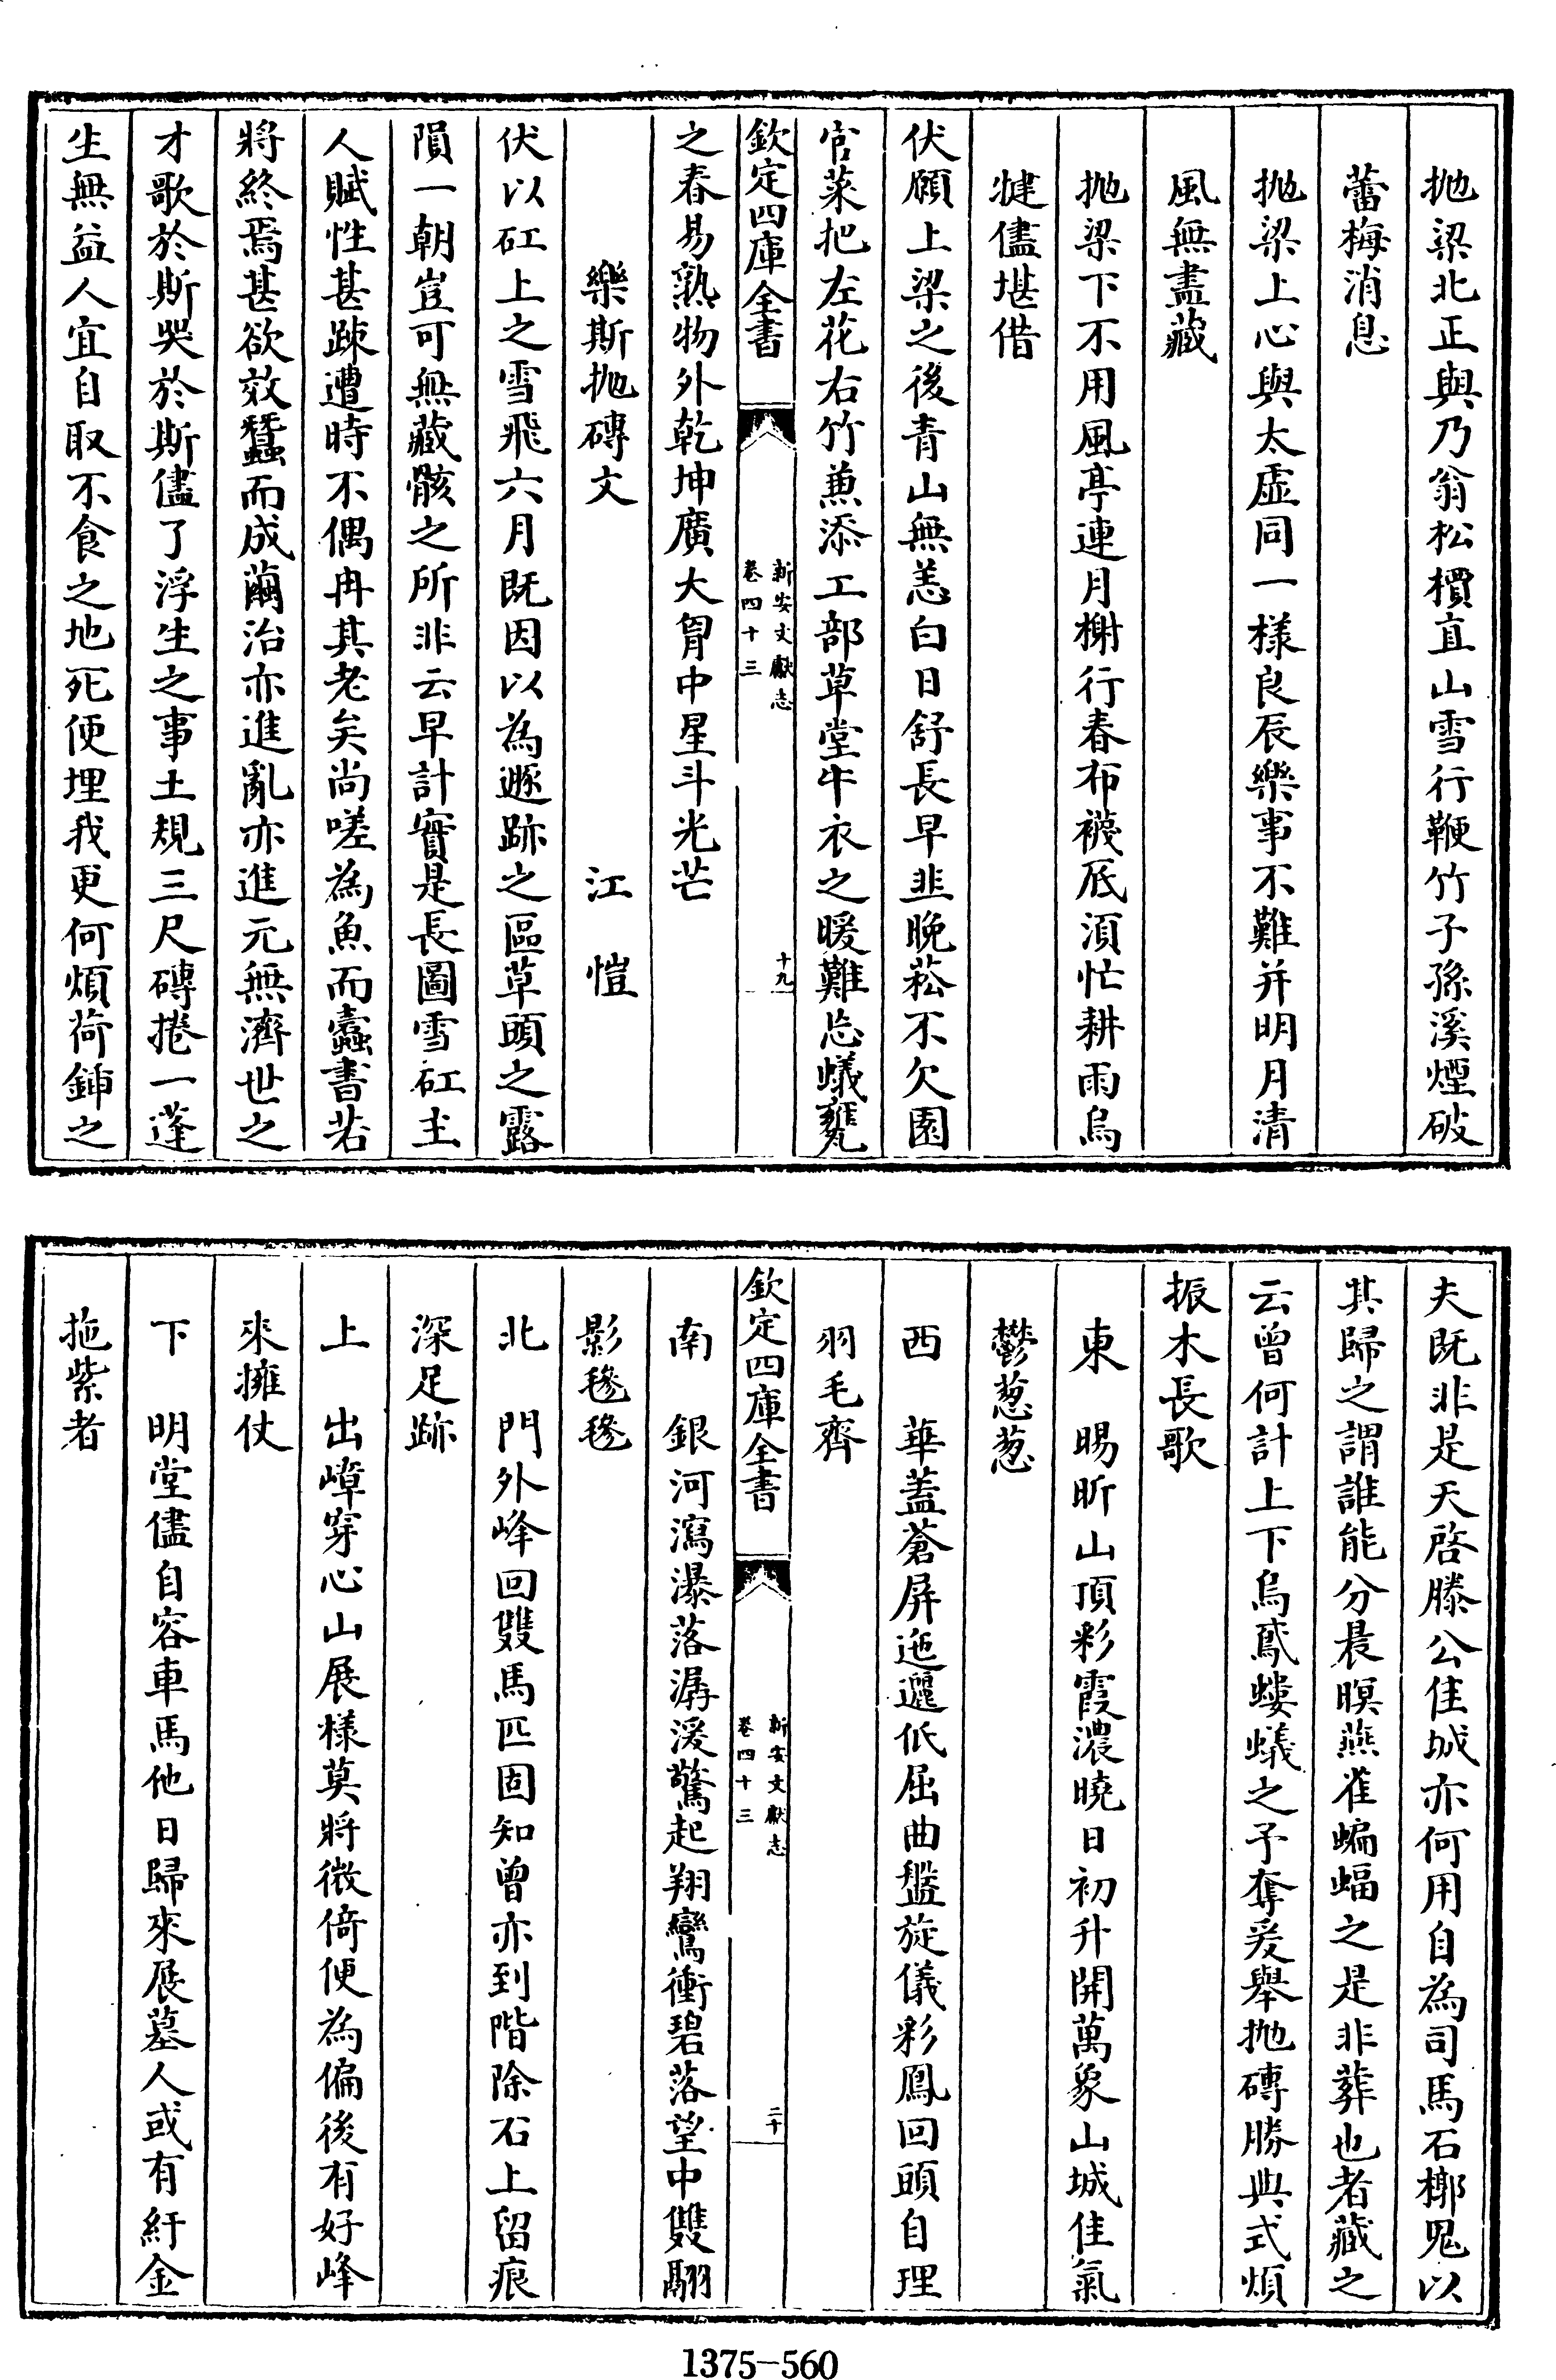 拋梁北正與乃翁松檟直山雪行鞭竹子孫溪煙破
蕾梅消息
拋梁上心與太虛同一樣良辰樂事不難并明月清
風無盡藏
拋梁下不用風亭連月榭行春布襪底須忙耕雨烏
犍儘堪借
伏願上梁之後青山無恙白日舒長早韭晚菘不欠園
官菜把左花右竹兼添工部草堂牛衣之暖難忘蟻甕
之春易熟物外乾坤廣大胷中星斗光芒
欽定四庫全書
新安文獻志
卷四十三
十九
樂斯拋磚文 江愷
伏以矼上之雪飛六月既因以為遯跡之區草頭之露
隕一朝豈可無藏骸之所非云早計實是長圖雪矼主
人賦性甚踈遭時不偶冉其老矣尚嗟為魚而蠹書若
將終焉甚欲效蠶而成繭治亦進亂亦進元無濟世之
才歌於斯哭於斯儘了浮生之事土規三尺磚捲一蓬
生無益人宜自取不食之地死便埋我更何煩荷鍤之
夫既非是天啓滕公佳城亦何用自為司馬石槨鬼以
其歸之謂誰能分晨暝燕雀蝙蝠之是非葬也者藏之
云曾何計上下烏鳶螻蟻之予奪爰舉拋磚勝典式煩
振木長歌
東 暘昕山頂彩霞濃曉日初升開萬象山城佳氣
鬱葱葱
西 華蓋蒼屏迤邐低屈曲盤旋儀彩鳳回頭自理
羽毛齊
欽定四庫全書
新安文獻志
卷四十三
二十
南 銀河瀉瀑落潺湲驚起翔鸞衝碧落望中雙翮
影毵毵
北 門外峰回雙馬匹固知曾亦到階除石上留痕
深足跡
上 出嶂穿心山展樣莫將微倚便為偏後有好峰
來擁仗
下 明堂儘自容車馬他日歸來展墓人或有紆金
拖紫者
1375-560